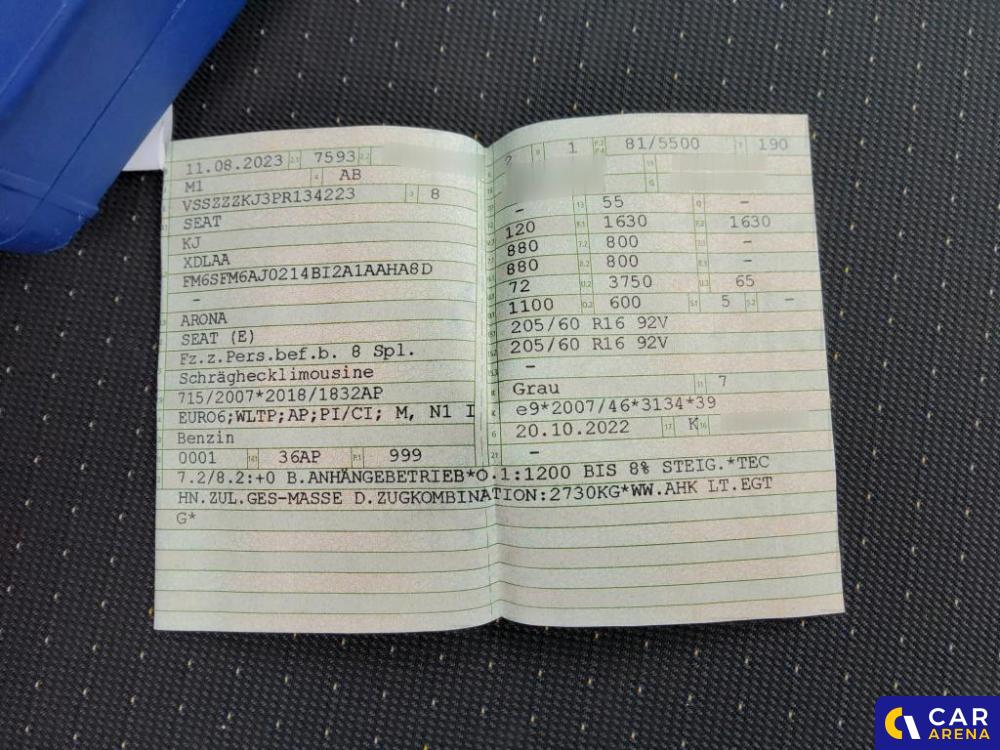 11.08.2023 2.1 7593 2.2
M1 4 AB
VSSZZZKJ3PR134223 3 8
SEAT
KJ
XDLAA
FM6SFM6AJ0214BI2A1AAHA8D
-
ARONA
SEAT (E)
Fz.z.Pers.bef.b. 8 Spl.
Schräghecklimousine
715/2007*2018/1832AP
EURO6;WLTP;AP;PI/CI; M, N1 I
Benzin
0001 14.1 36AP P.1 999
2 9 1 P.2 P.4 81/5500 T 190
18
G
- 13 55 Q -
120 F.1 1630 F.2 1630
880 7.2 800 7.3 -
880 8.2 800 8.3 -
72 U.2 3750 U.3 65
1100 O.2 600 S.1 5 S.2 -
205/60 R16 92V
205/60 R16 92V
-
Grau 11 7
e9*2007/46*3134*39
20.10.2022 17 K 16
21 -
7.2/8.2:+0 B.ANHÄNGEBETRIEB*O.1:1200 BIS 8% STEIG.*TEC
HN.ZUL.GES-MASSE D.ZUGKOMBINATION:2730KG*WW.AHK LT.EGT
G*
CAR
ARENA